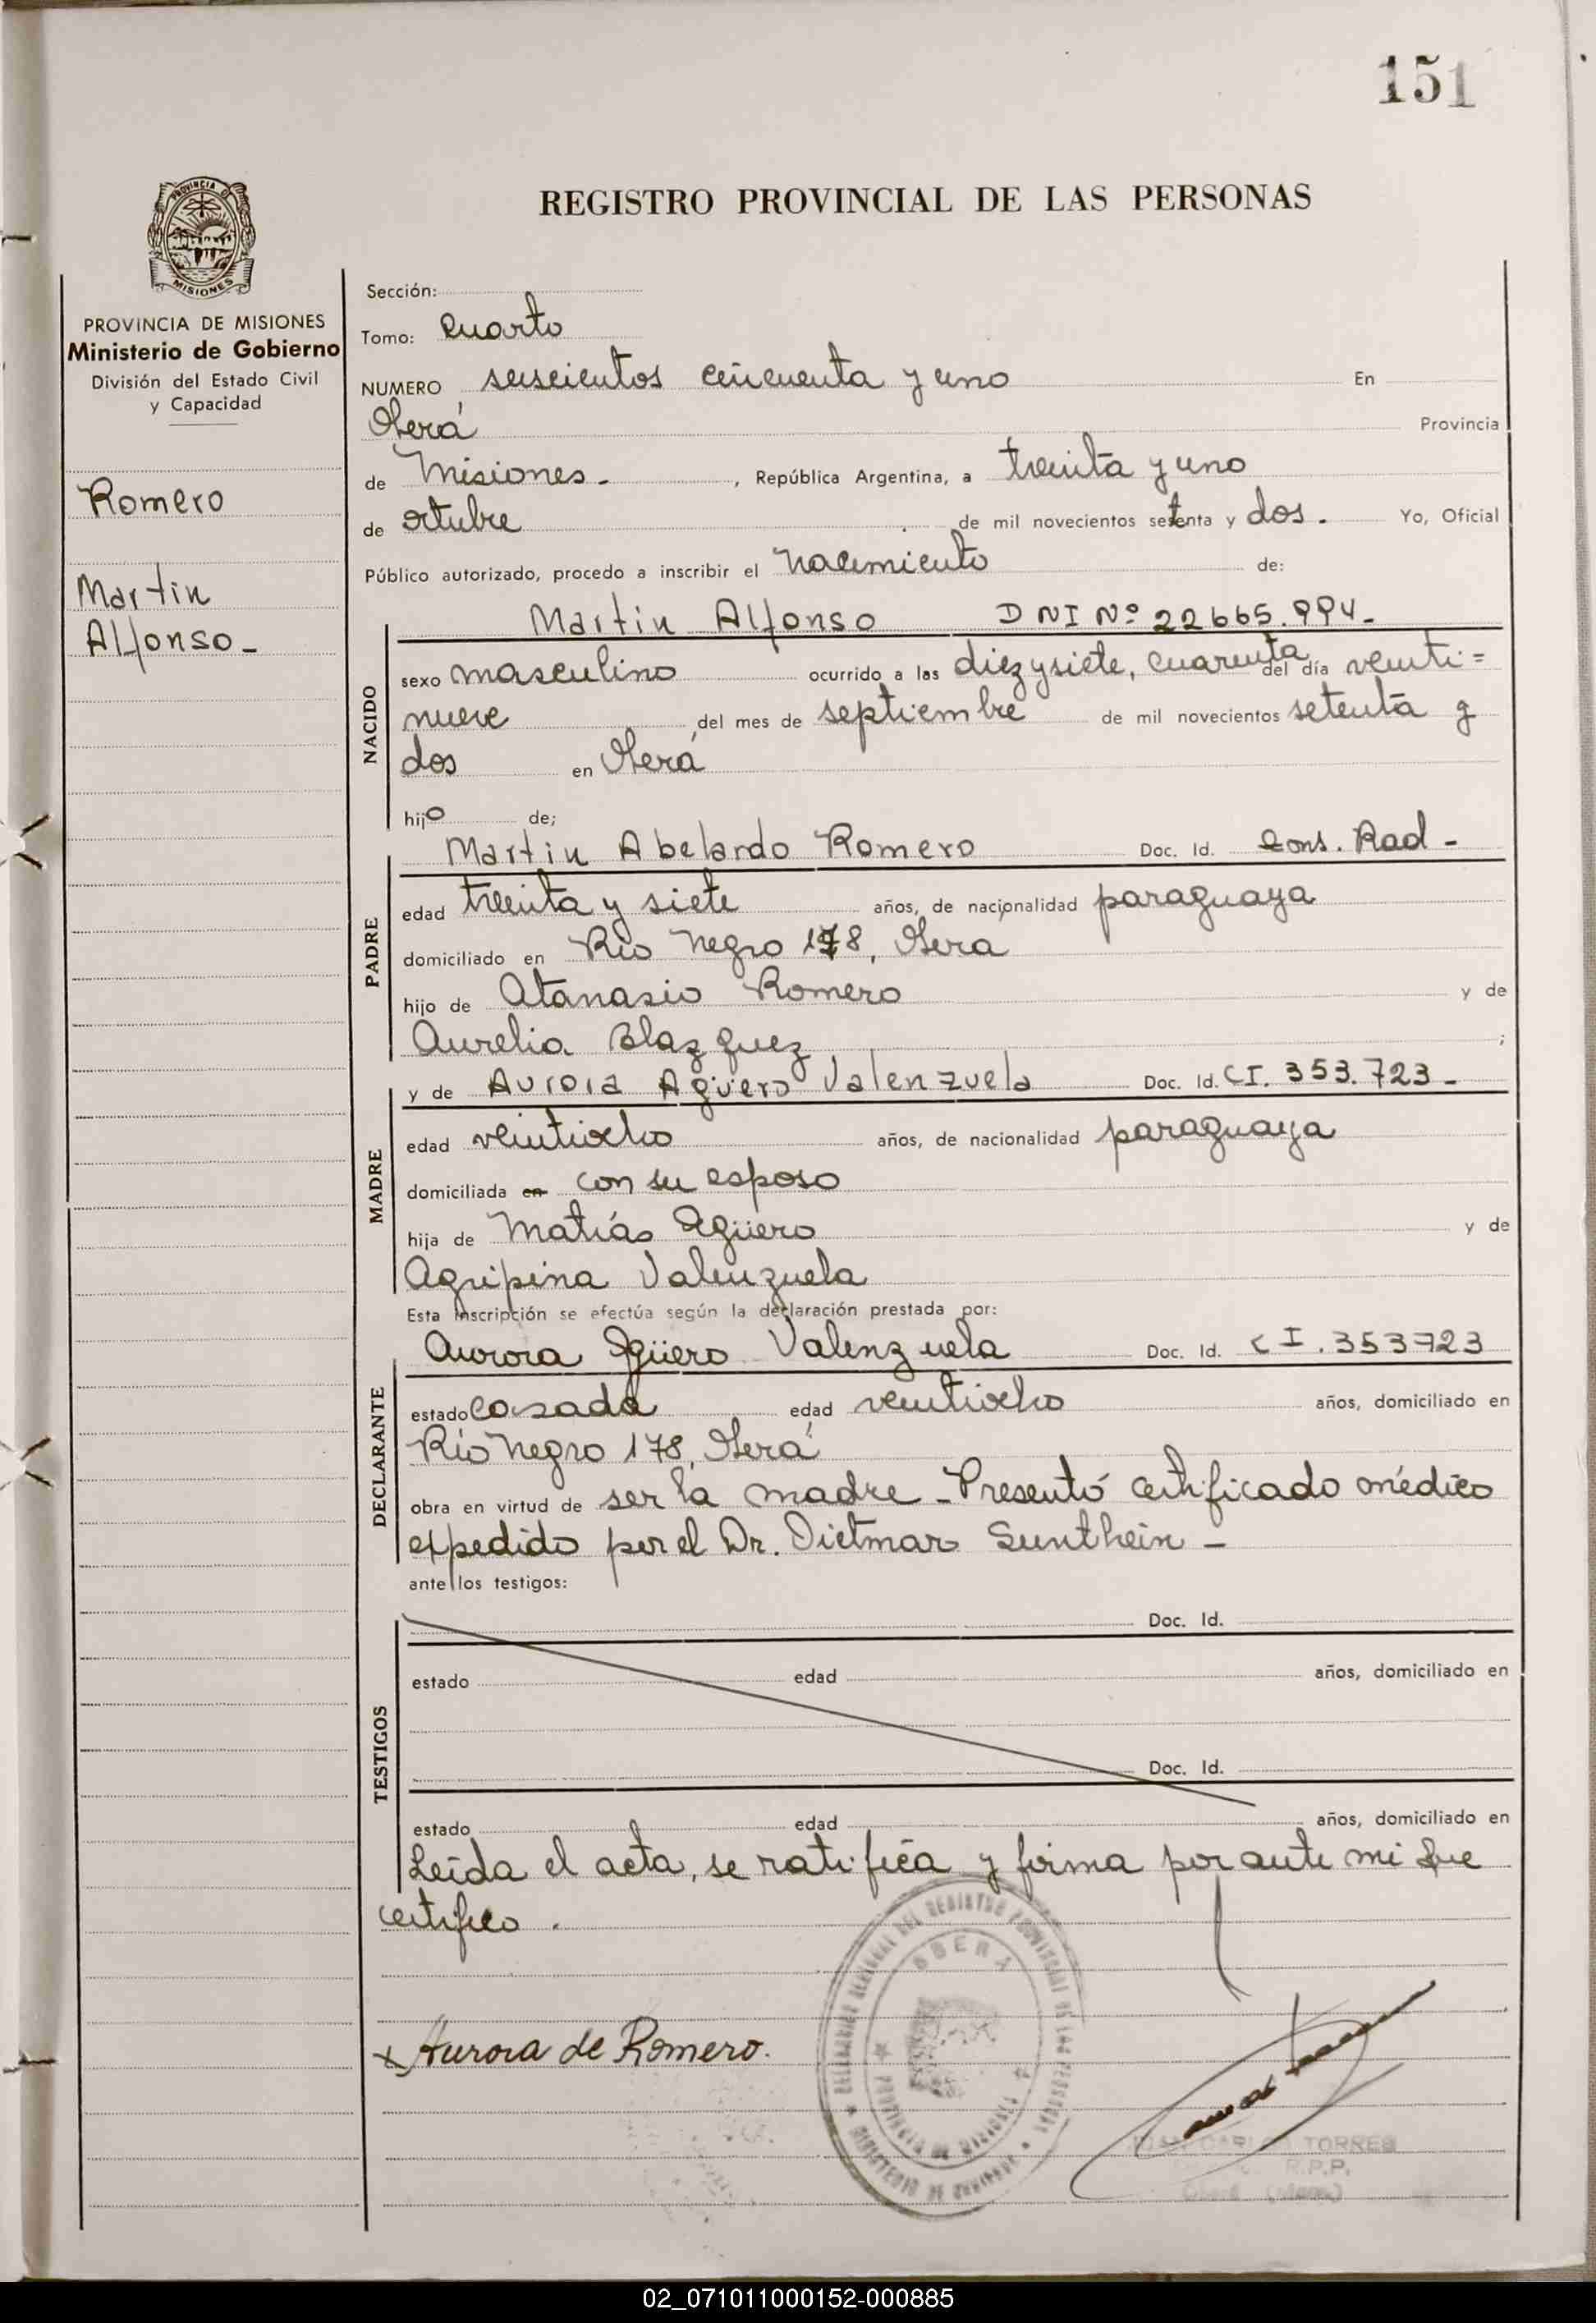 151
REGISTRO PROVINCIAL DE LAS PERSONAS
PROVINCIA DE MISIONES
Ministerio de Gobierno
División del Estado Civil
y Capacidad
Romero
Martin
Alfonso -
Sección:
Tomo: Cuarto
NUMERO seiscientos cincuenta y uno En
Oberá Provincia
de Misiones - , República Argentina, a treinta y uno
de octubre de mil novecientos setenta y dos. Yo, Oficial
Público autorizado, procedo a inscribir el nacimiento de:
NACIDO
Martin Alfonso DNI Nº 22665.994.-
sexo masculino ocurrido a las diez y siete, cuarenta del día veinti=
nueve del mes de septiembre de mil novecientos setenta y
dos en Oberá
hijo de;
PADRE
Martin Abelardo Romero Doc. Id. Cons. Rad -
edad treinta y siete años, de nacionalidad paraguaya
domiciliado en Río Negro 178, Oberá
hijo de Atanasio Romero y de
Aurelia Blazquez ;
MADRE
y de Aurora Agüero Valenzuela Doc. Id. CI. 353.723 -
edad veintiocho años, de nacionalidad paraguaya
domiciliada en con su esposo
hija de Matías Agüero y de
Agripina Valenzuela
Esta inscripción se efectúa según la declaración prestada por:
DECLARANTE
Aurora Agüero Valenzuela Doc. Id. CI. 353723
estado casada edad veintiocho años, domiciliado en
Río Negro 178, Oberá
obra en virtud de ser la madre - Presentó certificado médico
expedido por el Dr. Dietmar Sunthein -
ante los testigos:
TESTIGOS
Doc. Id.
estado edad años, domiciliado en
Doc. Id.
estado edad años, domiciliado en
Leída el acta, se ratifica y firma por ante mi que
certifico.
x Aurora de Romero.
OBERA
PROVINCIA DE MISIONES
JUAN CARLOS TORRES
R.P.P.
02_071011000152-000885